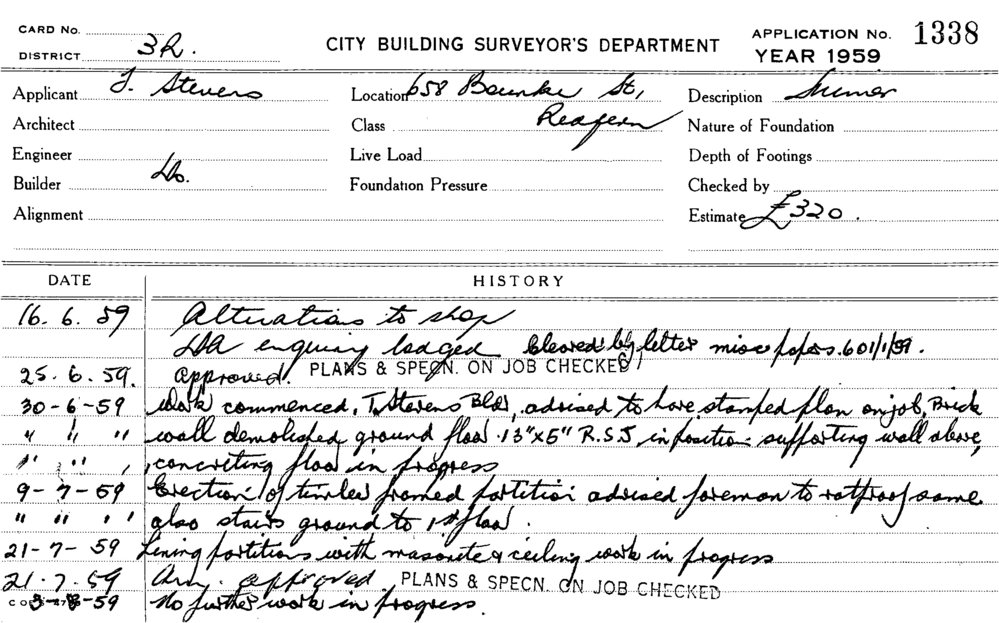 CARD No.
DISTRICT 3R.
CITY BUILDING SURVEYOR'S DEPARTMENT
APPLICATION No. 1338
YEAR 1959
Applicant T. Stevens
Location 658 Bourke St,
Redfern
Description
Architect
Class
Nature of Foundation
Engineer
Live Load
Depth of Footings
Builder Do.
Foundation Pressure
Checked by
Alignment
Estimate £320.
DATE HISTORY
16. 6. 59 Alterations to shop
DA enquiry lodged Cleared by letter misc papers. 601/1/59.
25. 6. 59. approved. PLANS & SPECN. ON JOB CHECKED
30-6-59 Work commenced, T. Stevens Bldr, advised to have stamped plan on job, Brick
" " " wall demolished ground floor 13"x5" R.S.J in position supporting wall above,
" " " concreting floor in progress
9-7-59 Erection of timber framed partition advised foreman to ratproof same
" " " also stairs ground to 1st floor.
21-7-59 Lining partitions with masonite & ceiling work in progress
21.7.59 Am. approved PLANS & SPECN. ON JOB CHECKED
3-8-59 No further work in progress.